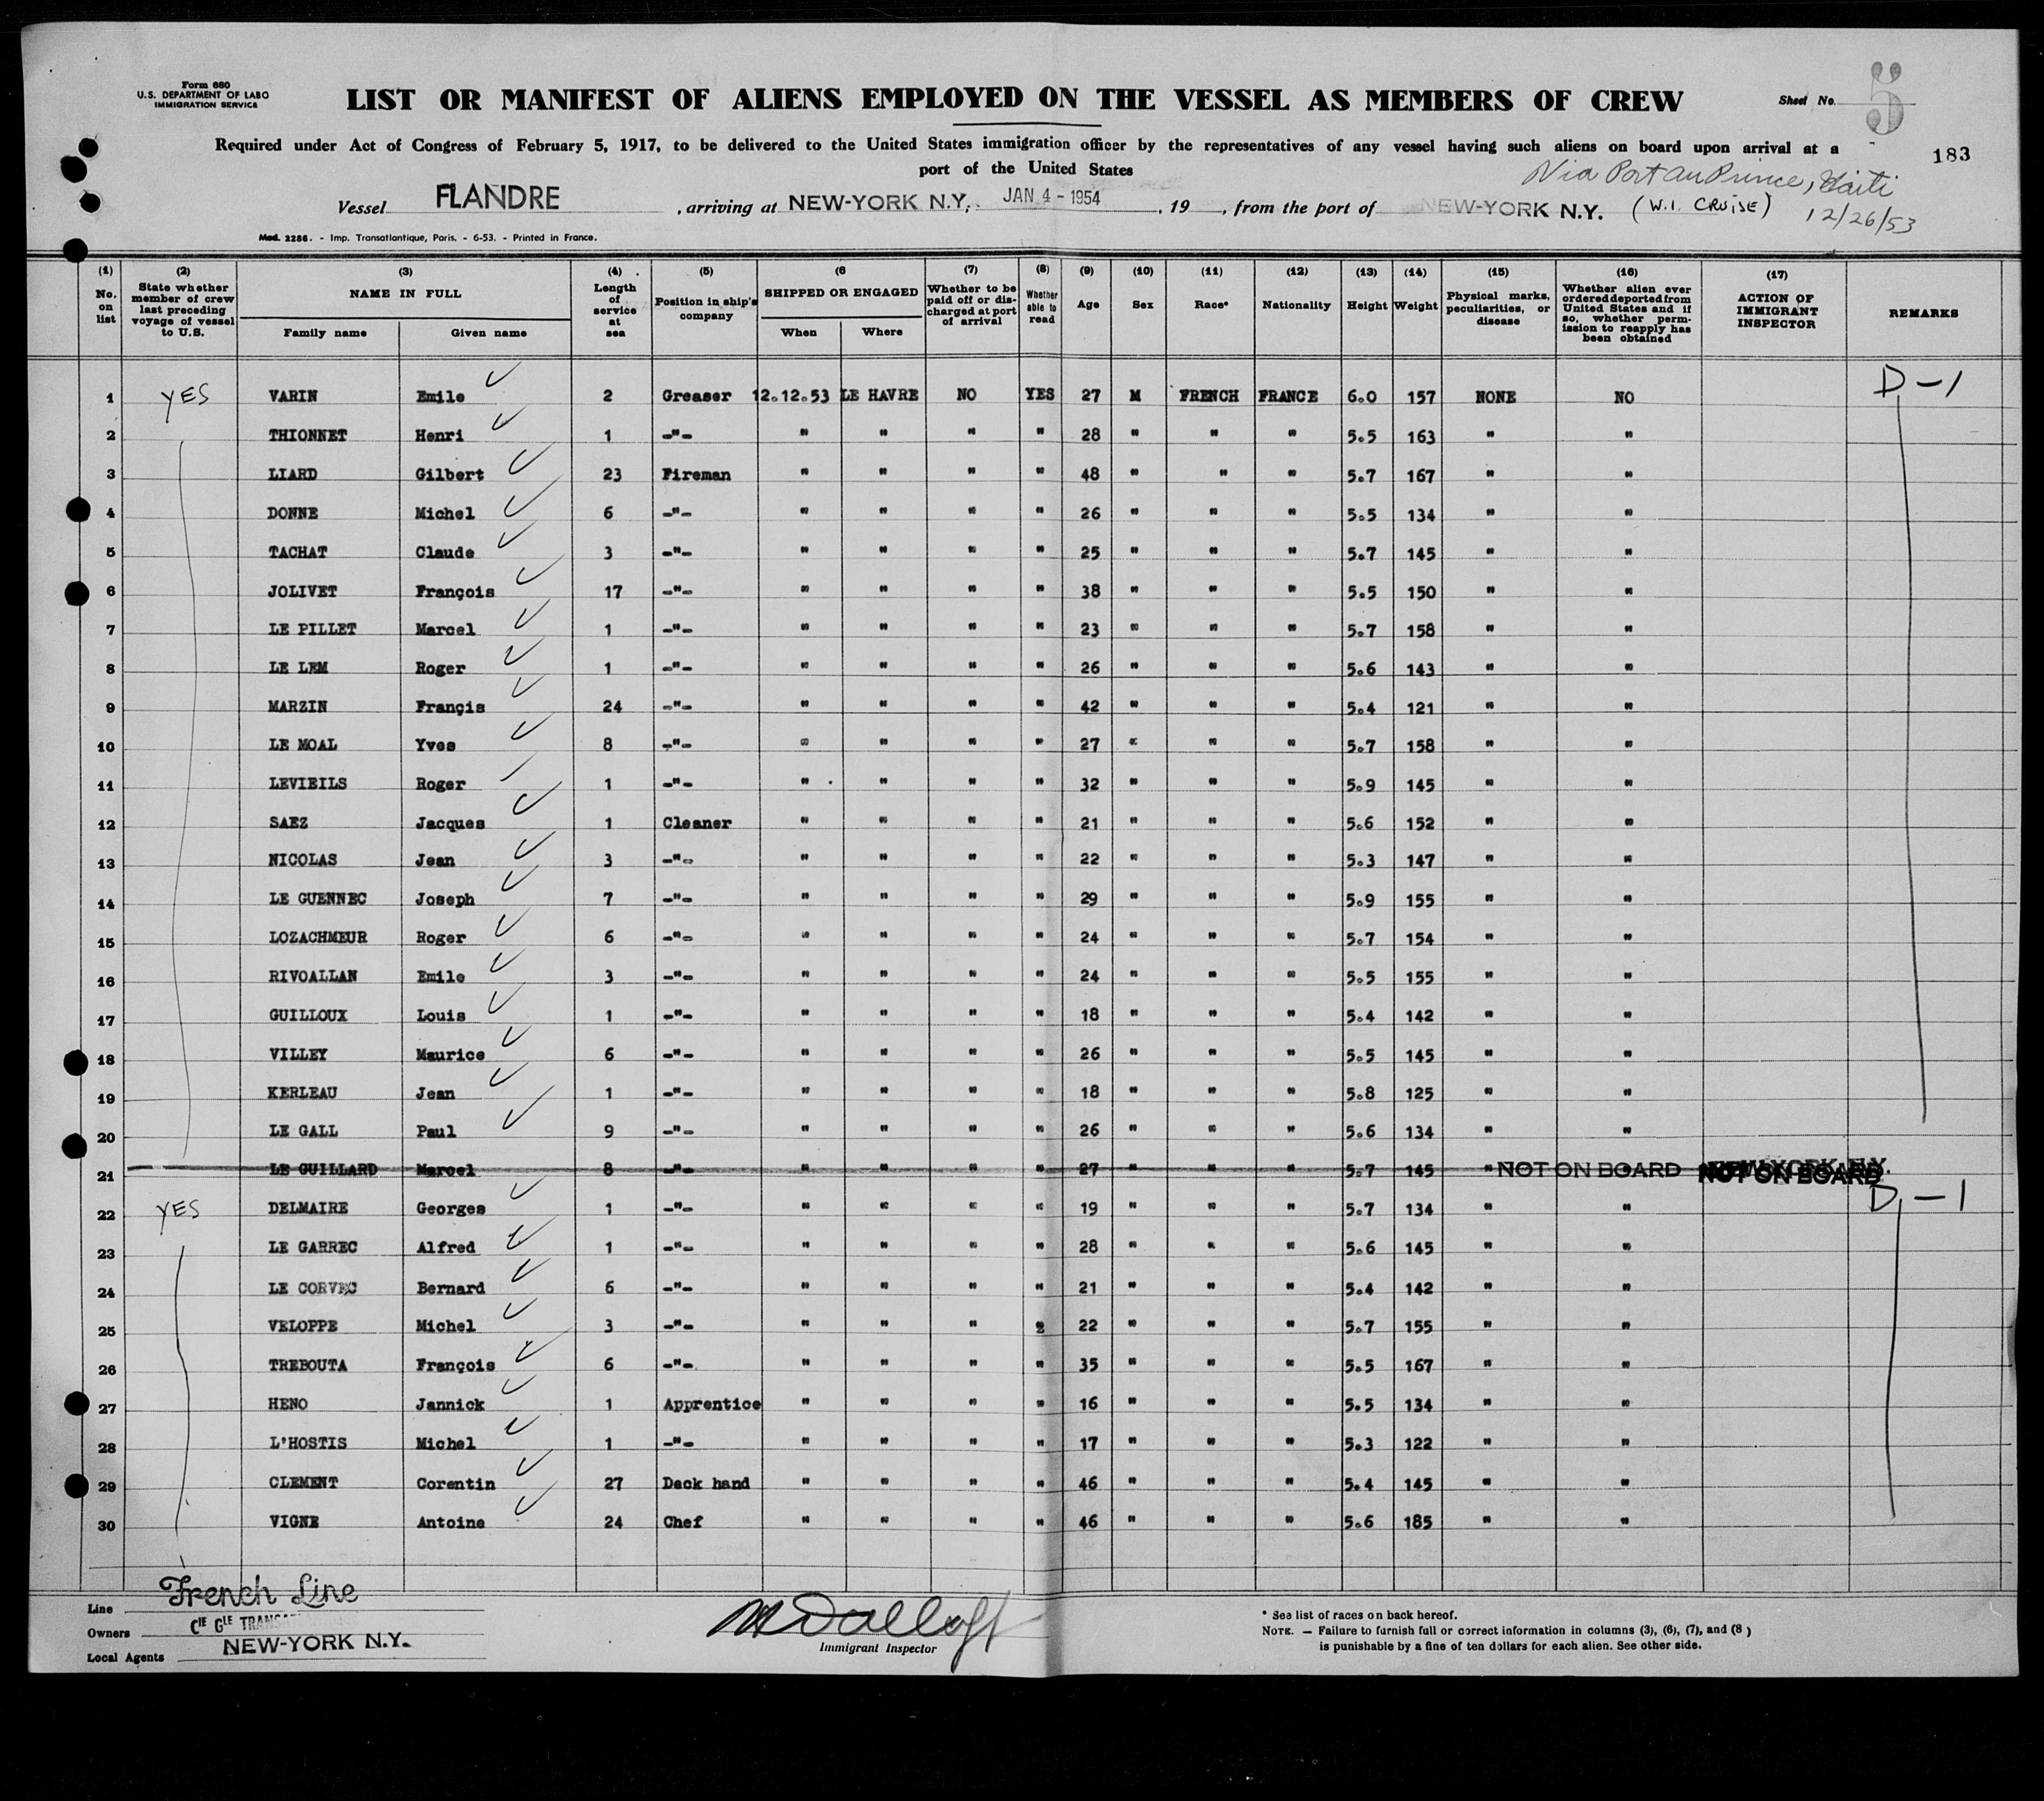 Form 680
U.S. DEPARTMENT OF LABO
IMMIGRATION SERVICE
LIST OR MANIFEST OF ALIENS EMPLOYED ON THE VESSEL AS MEMBERS OF CREW
Sheet No. 5
Required under Act of Congress of February 5, 1917, to be delivered to the United States immigration officer by the representatives of any vessel having such aliens on board upon arrival at a
port of the United States
183
Via Port au Prince, Haiti
12/26/53
Vessel FLANDRE , arriving at NEW-YORK N.Y. JAN 4 - 1954 , 19 , from the port of NEW-YORK N.Y. (W.I. CRUISE)
Mod. 2286. - Imp. Transatlantique, Paris. - 6-53. - Printed in France.
(1) (2) (3) (4) (5) (6 (7) (8) (9) (10) (11) (12) (13) (14) (15) (16) (17)
No. on list
State whether member of crew last preceding voyage of vessel to U.S.
NAME IN FULL
Family name Given name
Length of service at sea
Position in ship's company
SHIPPED OR ENGAGED
When Where
Whether to be paid off or discharged at port of arrival
Whether able to read
Age Sex Race* Nationality Height Weight
Physical marks, peculiarities, or disease
Whether alien ever ordered deported from United States and if so, whether permission to reapply has been obtained
ACTION OF IMMIGRANT INSPECTOR
REMARKS
1 YES VARIN Emile 2 Greaser 12.12.53 LE HAVRE NO YES 27 M FRENCH FRANCE 6.0 157 NONE NO D-1
2 THIONNET Henri 1 -"- " " " " 28 " " " 5.5 163 " "
3 LIARD Gilbert 23 Fireman " " " " 48 " " " 5.7 167 " "
4 DONNE Michel 6 -"- " " " " 26 " " " 5.5 134 " "
5 TACHAT Claude 3 -"- " " " " 25 " " " 5.7 145 " "
6 JOLIVET François 17 -"- " " " " 38 " " " 5.5 150 " "
7 LE PILLET Marcel 1 -"- " " " " 23 " " " 5.7 158 " "
8 LE LEM Roger 1 -"- " " " " 26 " " " 5.6 143 " "
9 MARZIN Françis 24 -"- " " " " 42 " " " 5.4 121 " "
10 LE MOAL Yves 8 -"- " " " " 27 " " " 5.7 158 " "
11 LEVIEILS Roger 1 -"- " " " " 32 " " " 5.9 145 " "
12 SAEZ Jacques 1 Cleaner " " " " 21 " " " 5.6 152 " "
13 NICOLAS Jean 3 -"- " " " " 22 " " " 5.3 147 " "
14 LE GUENNEC Joseph 7 -"- " " " " 29 " " " 5.9 155 " "
15 LOZACHMEUR Roger 6 -"- " " " " 24 " " " 5.7 154 " "
16 RIVOALLAN Emile 3 -"- " " " " 24 " " " 5.5 155 " "
17 GUILLOUX Louis 1 -"- " " " " 18 " " " 5.4 142 " "
18 VILLEY Maurice 6 -"- " " " " 26 " " " 5.5 145 " "
19 KERLEAU Jean 1 -"- " " " " 18 " " " 5.8 125 " "
20 LE GALL Paul 9 -"- " " " " 26 " " " 5.6 134 " "
21 LE GUILLARD Marcel 8 -"- " " " " 27 " " " 5.7 145 " NOT ON BOARD NOT ON BOARD NEW-YORK N.Y.
22 YES DELMAIRE Georges 1 -"- " " " " 19 " " " 5.7 134 " " D-1
23 LE GARREC Alfred 1 -"- " " " " 28 " " " 5.6 145 " "
24 LE CORVEC Bernard 6 -"- " " " " 21 " " " 5.4 142 " "
25 VELOPPE Michel 3 -"- " " " 2 22 " " " 5.7 155 " "
26 TREBOUTA François 6 -"- " " " " 35 " " " 5.5 167 " "
27 HENO Jannick 1 Apprentice " " " " 16 " " " 5.5 134 " "
28 L'HOSTIS Michel 1 -"- " " " " 17 " " " 5.3 122 " "
29 CLEMENT Corentin 27 Deck hand " " " " 46 " " " 5.4 145 " "
30 VIGNE Antoine 24 Chef " " " " 46 " " " 5.6 185 " "
Line French Line
Owners CIE GLE
Local Agents NEW-YORK N.Y.
Immigrant Inspector
* See list of races on back hereof.
NOTE. — Failure to furnish full or correct information in columns (3), (6), (7), and (8 )
is punishable by a fine of ten dollars for each alien. See other side.